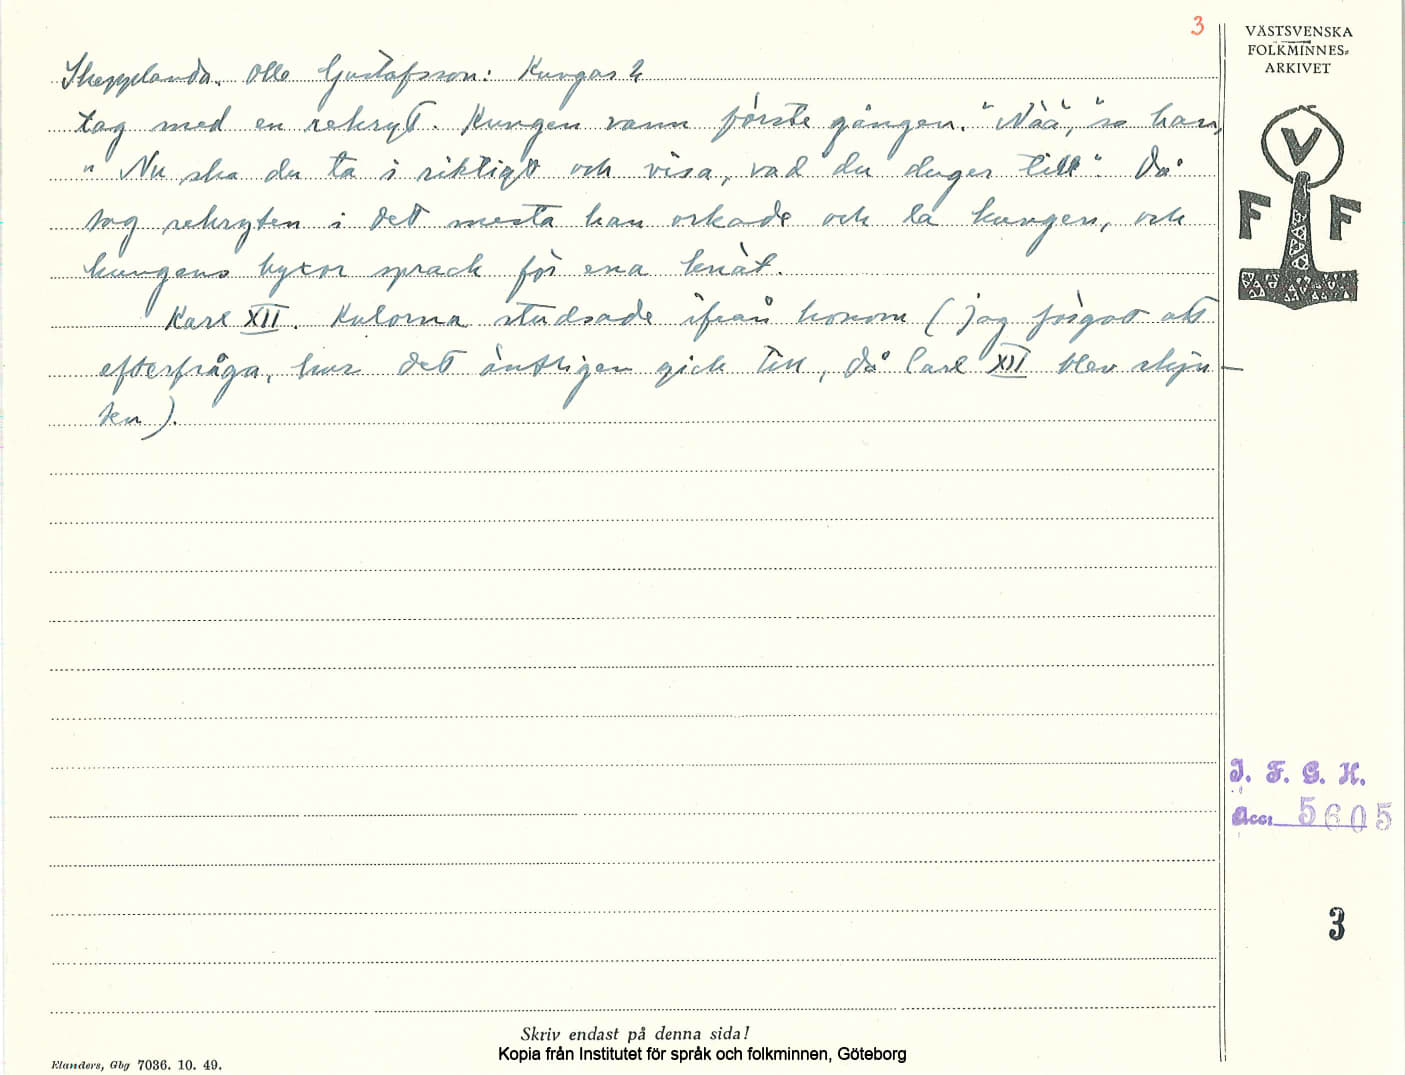 3
VÄSTSVENSKA
FOLKMINNES=
ARKIVET
Skepplanda. Olle Gustafsson: Kungar 2
tag med en rekryt. Kungen vann förste gången. "Nää", sa han,
"Nu ska du ta i riktigt och visa, vad du duger till". Då
tog rekryten i det mesta han orkade och la kungen, och
kungens byxor sprack för ena knät.
Karl XII. Kulorna studsade ifrån honom (jag förgat att
efterfråga, hur det äntligen gick till, då Carl XII blev skju-
ten).
V
F F
I. F. G. H.
Acc. 5605
3
Skriv endast på denna sida!
Kopia från Institutet för språk och folkminnen, Göteborg
Elanders, Gbg 7036. 10. 49.